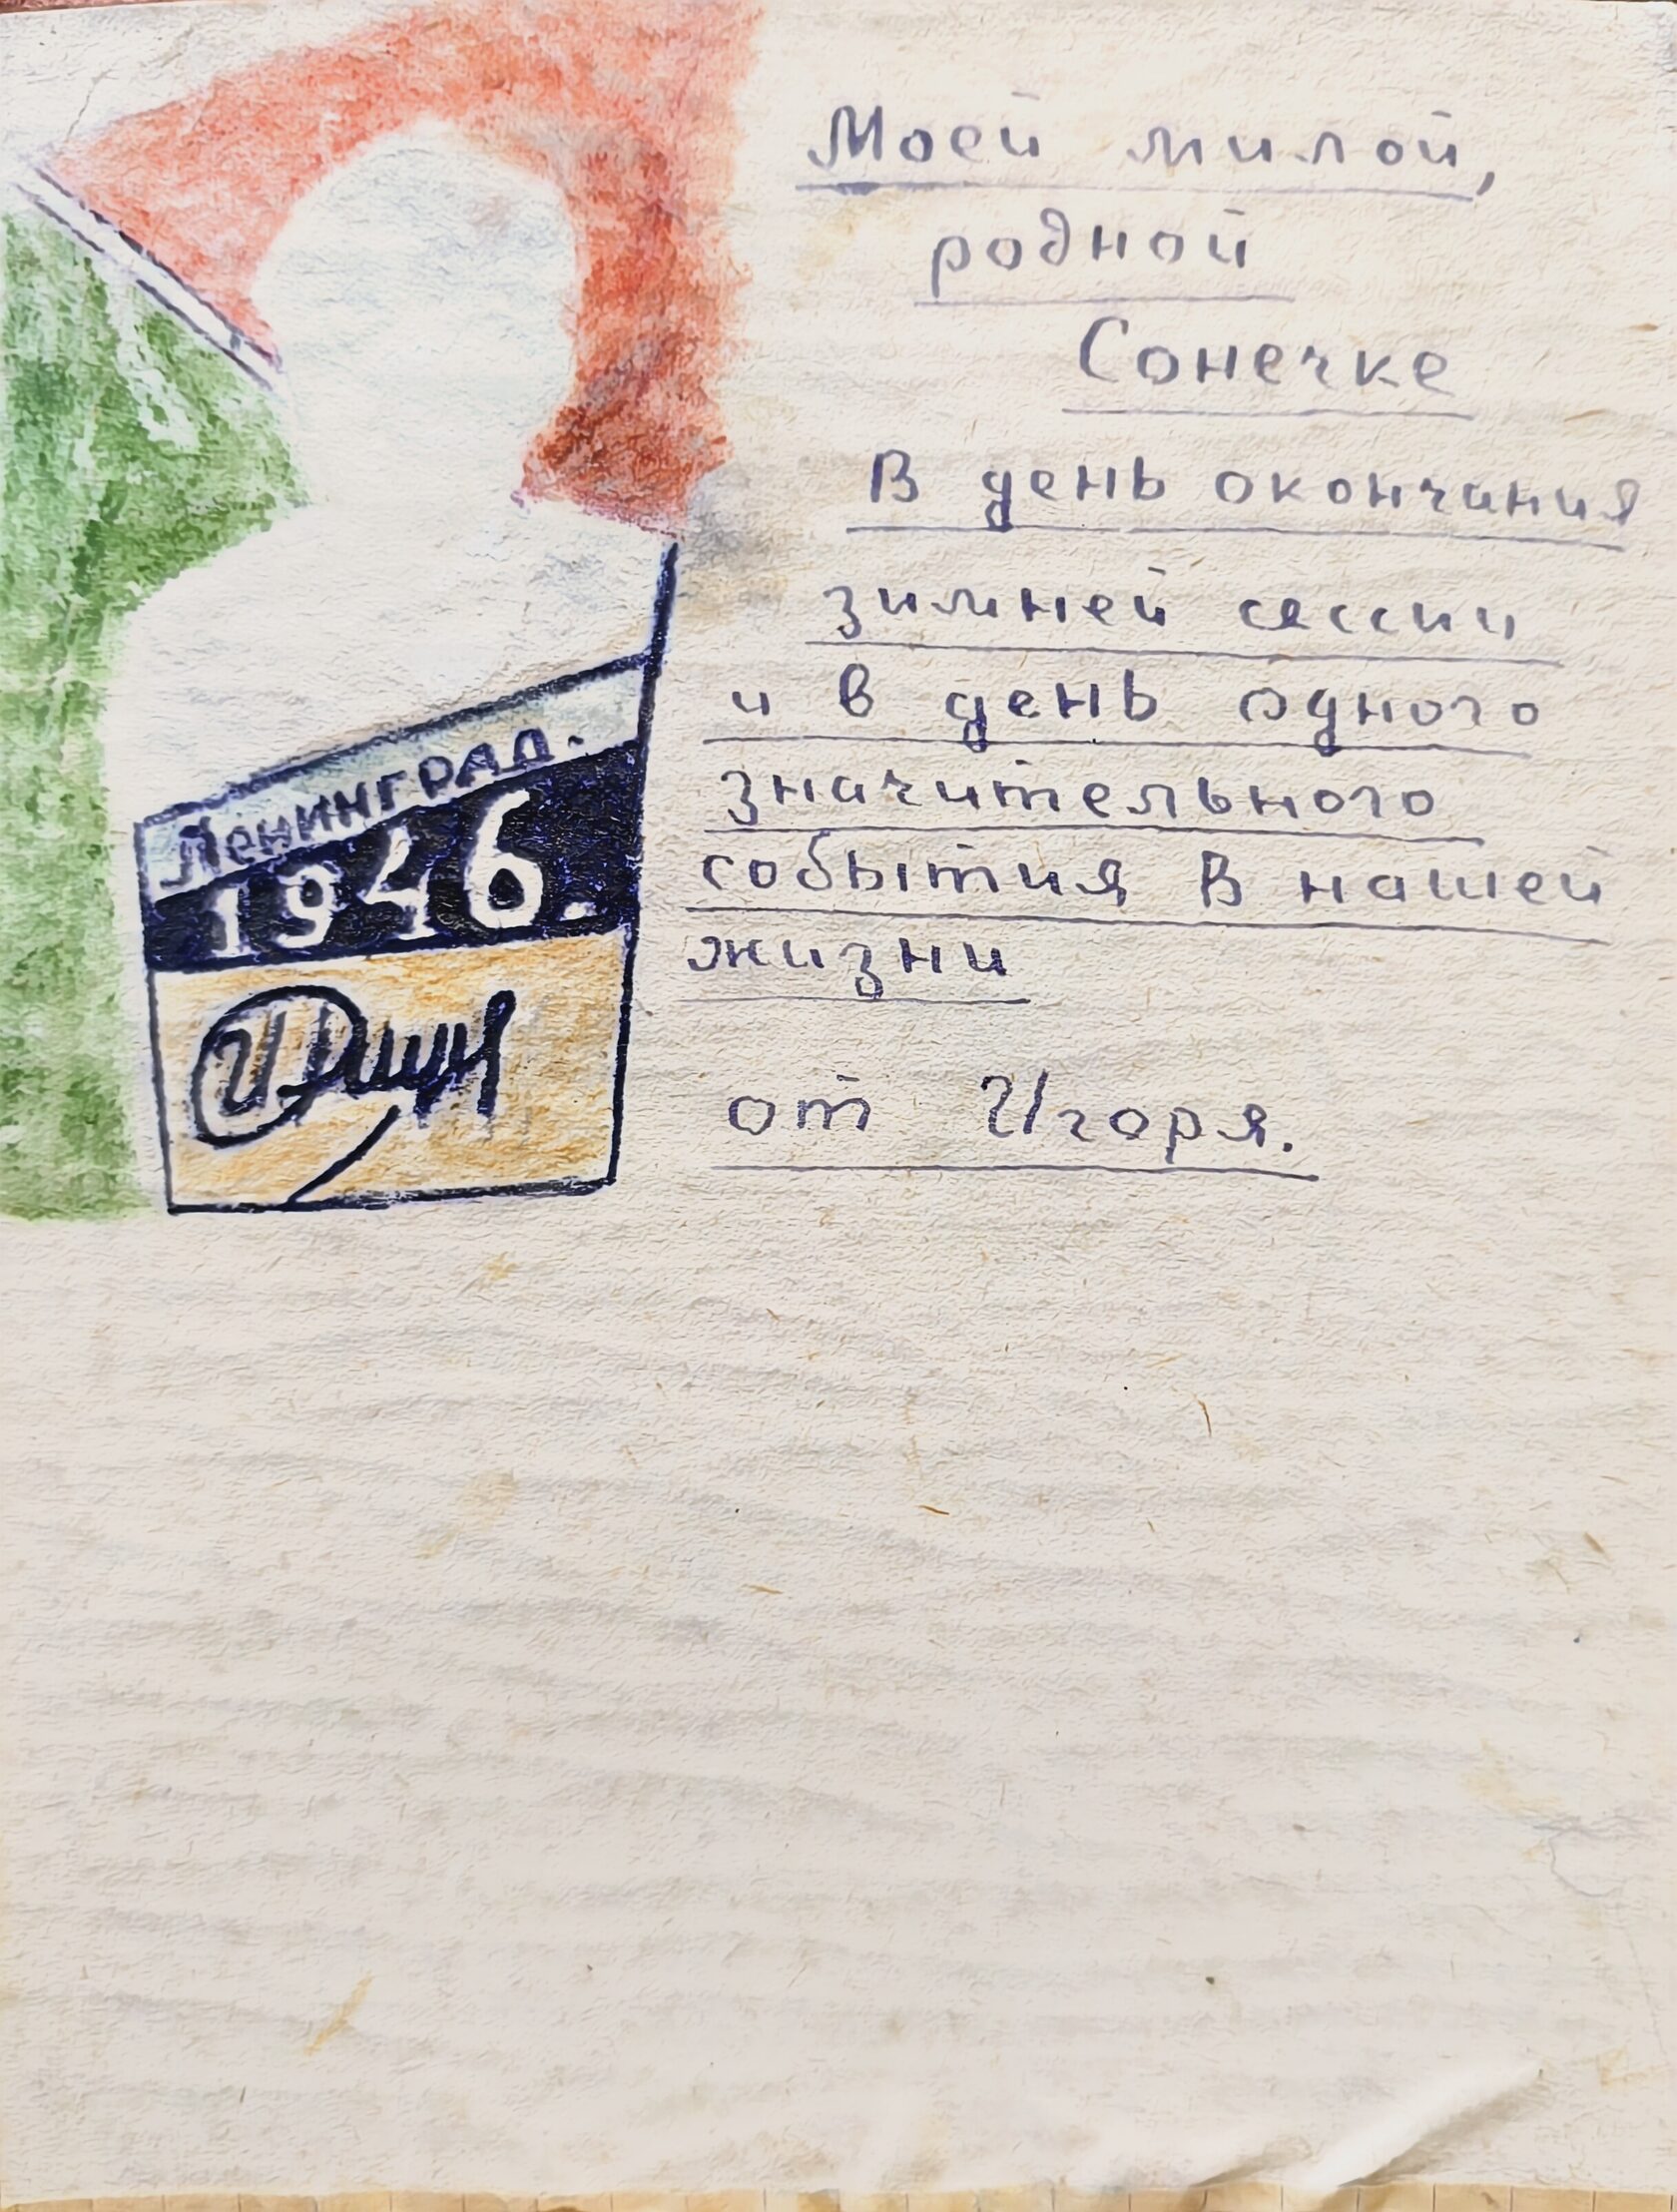 Моей милой,
родной
Сонечке
В день окончания
зимней сессии
и в день одного
значительного
события в нашей
жизни
от Игоря.
Ленинград.
1946.